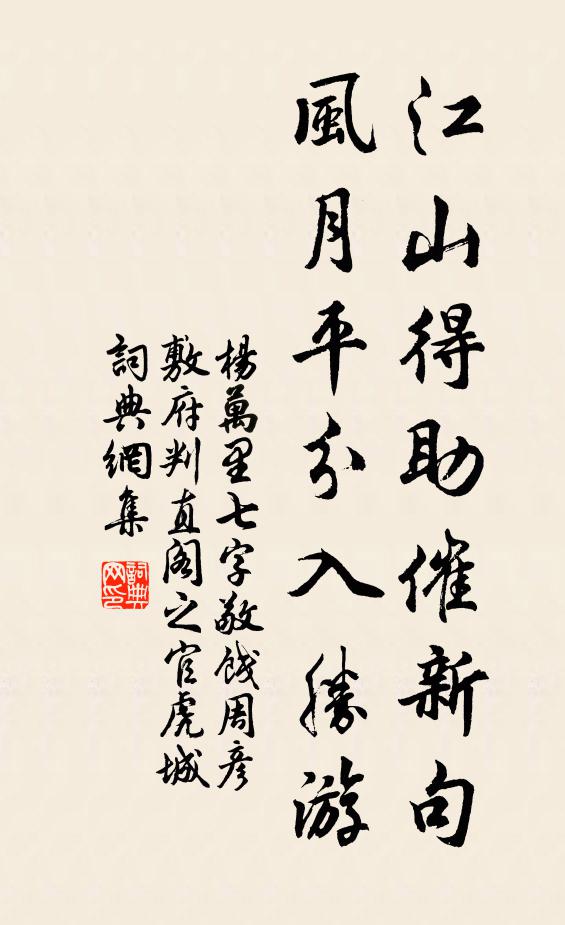 江山得助催新句
風月平分入勝游
楊萬里七字敬餞周彥
敷府判直閣之官虎城
詞典網集
詞典网印